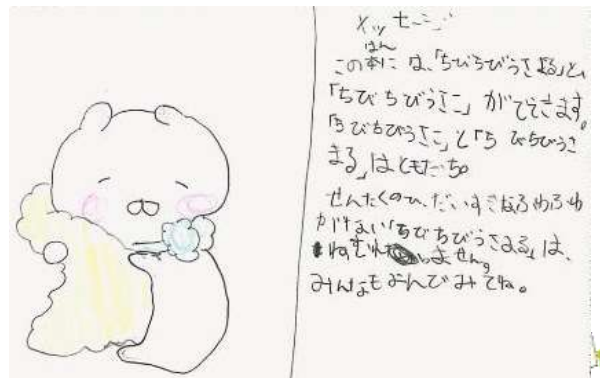 メッセージ
ほん
この本には、「ちびちびうさまる」と、
「ちびちびうさこ」がでてきます。
「ちびちびうさこ」と「ちびちびうさ
まる」はともだち。
せんたくのひ、だいすきなふわふわ
がない「ちびちびうさまる」は、
ねむれません。
みんなもよんでみてね。